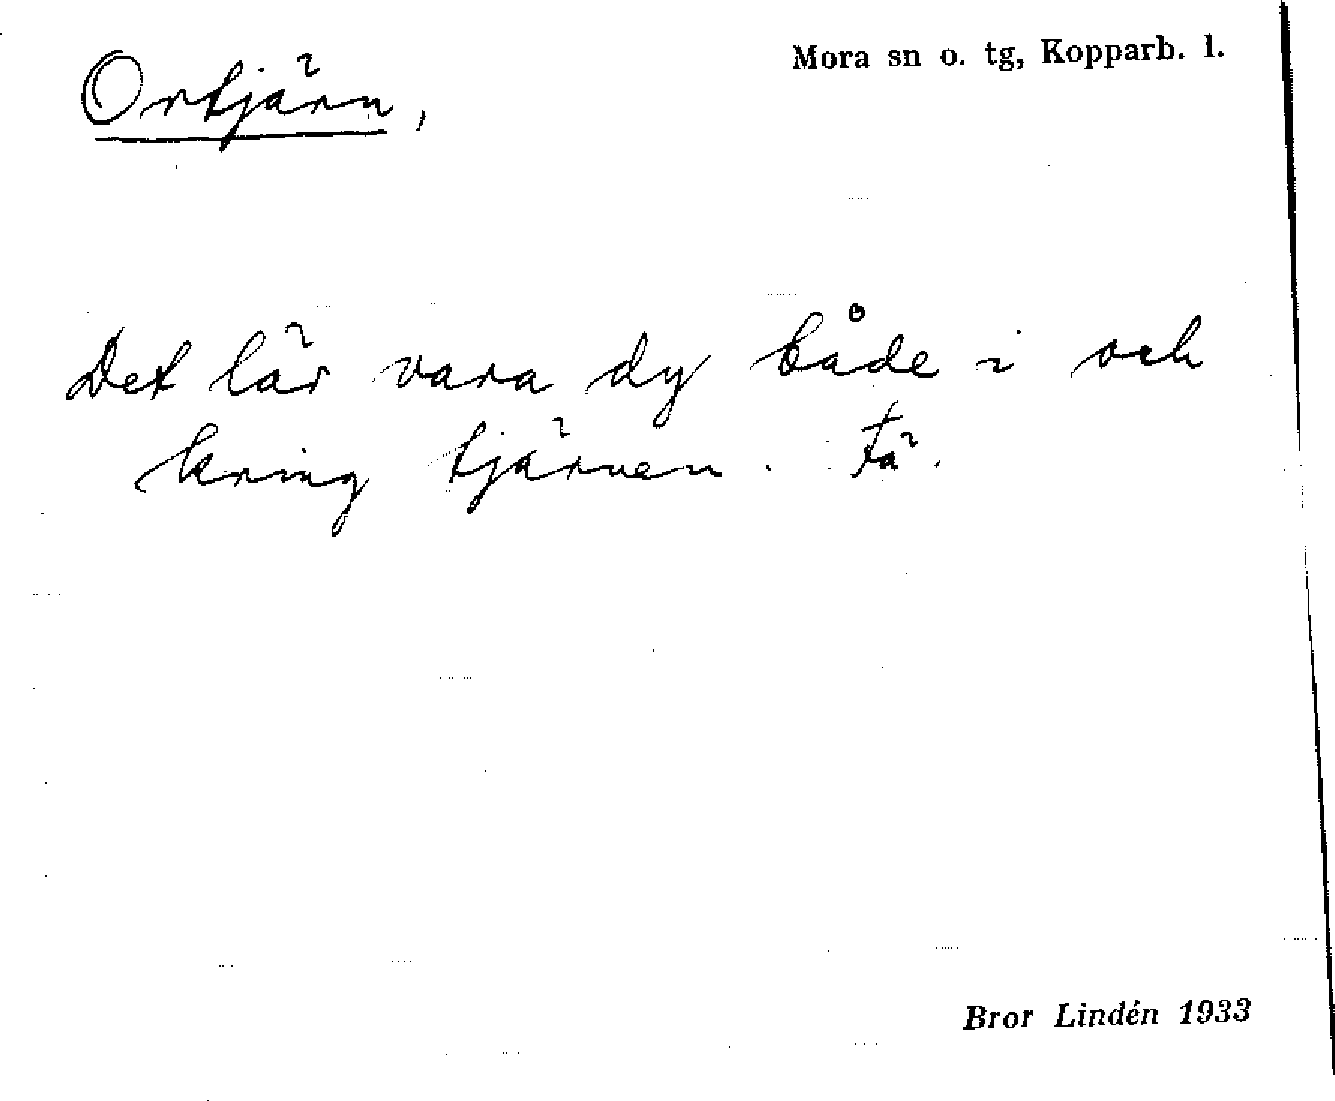 Ortjärn,
Mora sn o. tg, Kopparb. l.
Det lär vara dy både i och
kring tjärnen. Fä.
Bror Lindén 1933